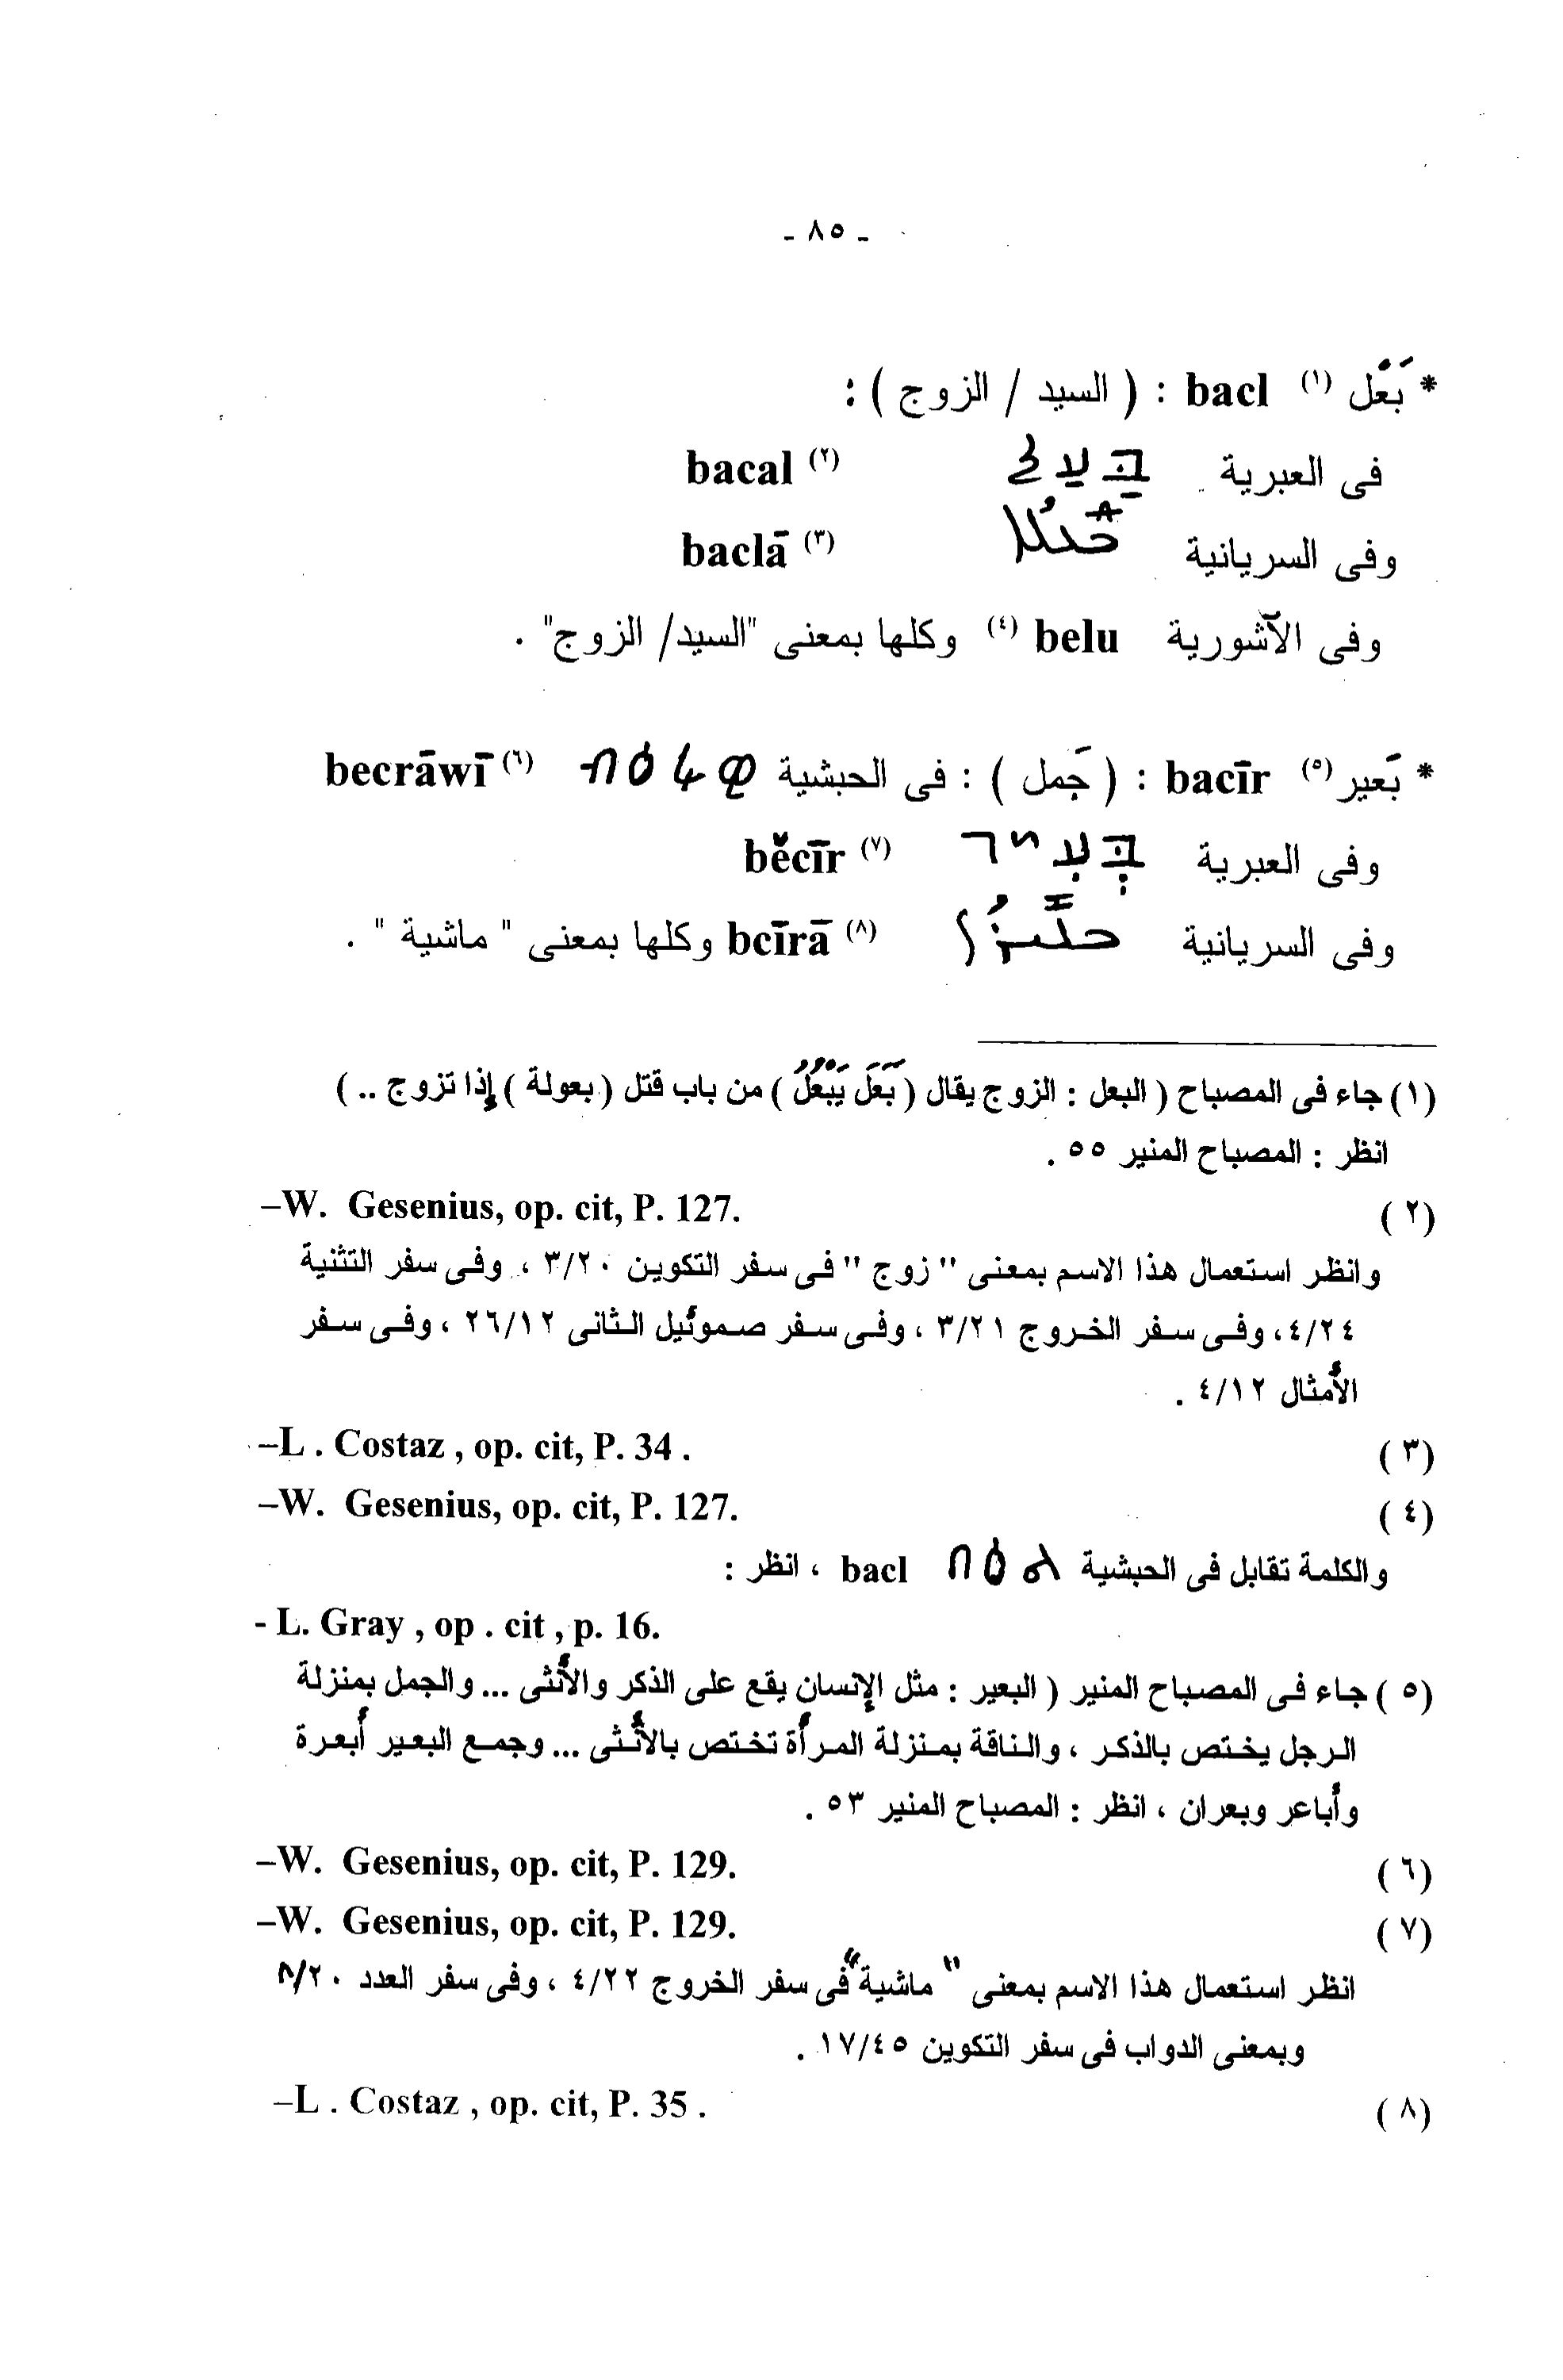 - ٨٥ -
* بَعْل (١) bacl : ( السيد / الزوج ) :
فى العبرية בַּעַל bacal (٢)
وفى السريانية ܒܥܠܐ baclā (٣)
وفى الآشورية belu (٤) وكلها بمعنى "السيد/ الزوج" .
* بَعير (٥) bacīr : ( جَمل ) : فى الحبشية becrāwī (٦)
وفى العبرية בְּעִיר bĕcīr (٧)
وفى السريانية ܒܥܝܪܐ bcīrā (٨) وكلها بمعنى " ماشية " .
(١) جاء فى المصباح ( البعل : الزوج يقال ( بَعَلَ يَبْعُلُ ) من باب قتل ( بعولة ) إذا تزوج .. )
انظر : المصباح المنير ٥٥ .
(٢) –W. Gesenius, op. cit, P. 127.
وانظر استعمال هذا الاسم بمعنى " زوج " فى سفر التكوين ٣/٢٠ ، وفى سفر التثنية
٤/٢٤، وفى سفر الخروج ٣/٢١ ، وفى سفر صموئيل الثانى ٢٦/١٢ ، وفى سفر
الأمثال ٤/١٢ .
(٣) –L . Costaz , op. cit, P. 34 .
(٤) –W. Gesenius, op. cit, P. 127.
والكلمة تقابل فى الحبشية በዐለ bacl ، انظر :
- L. Gray , op . cit , p. 16.
(٥) جاء فى المصباح المنير ( البعير : مثل الإنسان يقع على الذكر والأنثى ... والجمل بمنزلة
الرجل يختص بالذكر ، والناقة بمنزلة المرأة تختص بالأنثى ... وجمع البعير أبعرة
وأباعر وبعران ، انظر : المصباح المنير ٥٣ .
(٦) –W. Gesenius, op. cit, P. 129.
(٧) –W. Gesenius, op. cit, P. 129.
انظر استعمال هذا الاسم بمعنى " ماشية" فى سفر الخروج ٤/٢٢ ، وفى سفر العدد ٨/٢٠
وبمعنى الدواب فى سفر التكوين ١٧/٤٥ .
(٨) –L . Costaz , op. cit, P. 35 .